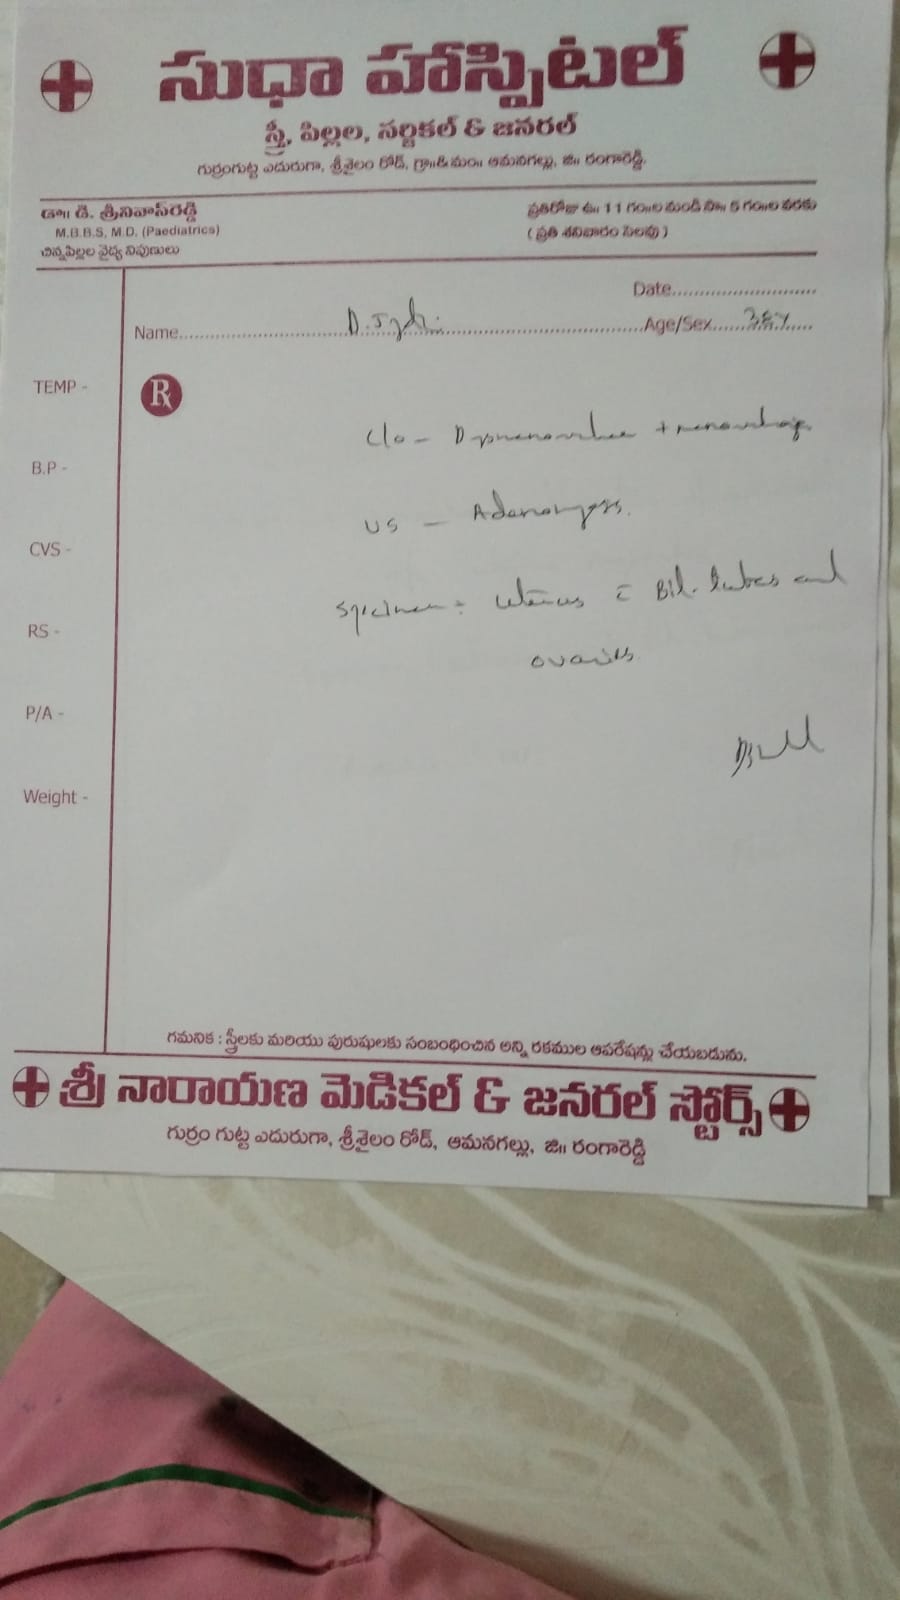 సుధా హాస్పిటల్
స్త్రీ, పిల్లల, సర్జికల్ & జనరల్
గుర్రంగుట్ట ఎదురుగా, శ్రీశైలం రోడ్, గ్రా॥&మం॥ ఆమనగల్లు, జి॥ రంగారెడ్డి.
డా॥ డి. శ్రీనివాస్‌రెడ్డి
M.B.B.S, M.D. (Paediatrics)
చిన్నపిల్లల వైద్య నిపుణులు
ప్రతిరోజు ఉ॥ 11 గం॥ల నుండి సా॥ 5 గం॥ల వరకు
( ప్రతి శనివారం సెలవు )
Date
Name D. Age/Sex 38Y
TEMP -
Rx
B.P -
CVS -
RS -
P/A -
Weight -
C/o - Dysmenorrhea + menorrhagia
US - Adenomyosis.
Specimen = Uterus c̄ Bil. tubes and
ovaries
గమనిక : స్త్రీలకు మరియు పురుషులకు సంబంధించిన అన్ని రకముల ఆపరేషన్లు చేయబడును.
శ్రీ నారాయణ మెడికల్ & జనరల్ స్టోర్స్
గుర్రం గుట్ట ఎదురుగా, శ్రీశైలం రోడ్, ఆమనగల్లు, జి॥ రంగారెడ్డి